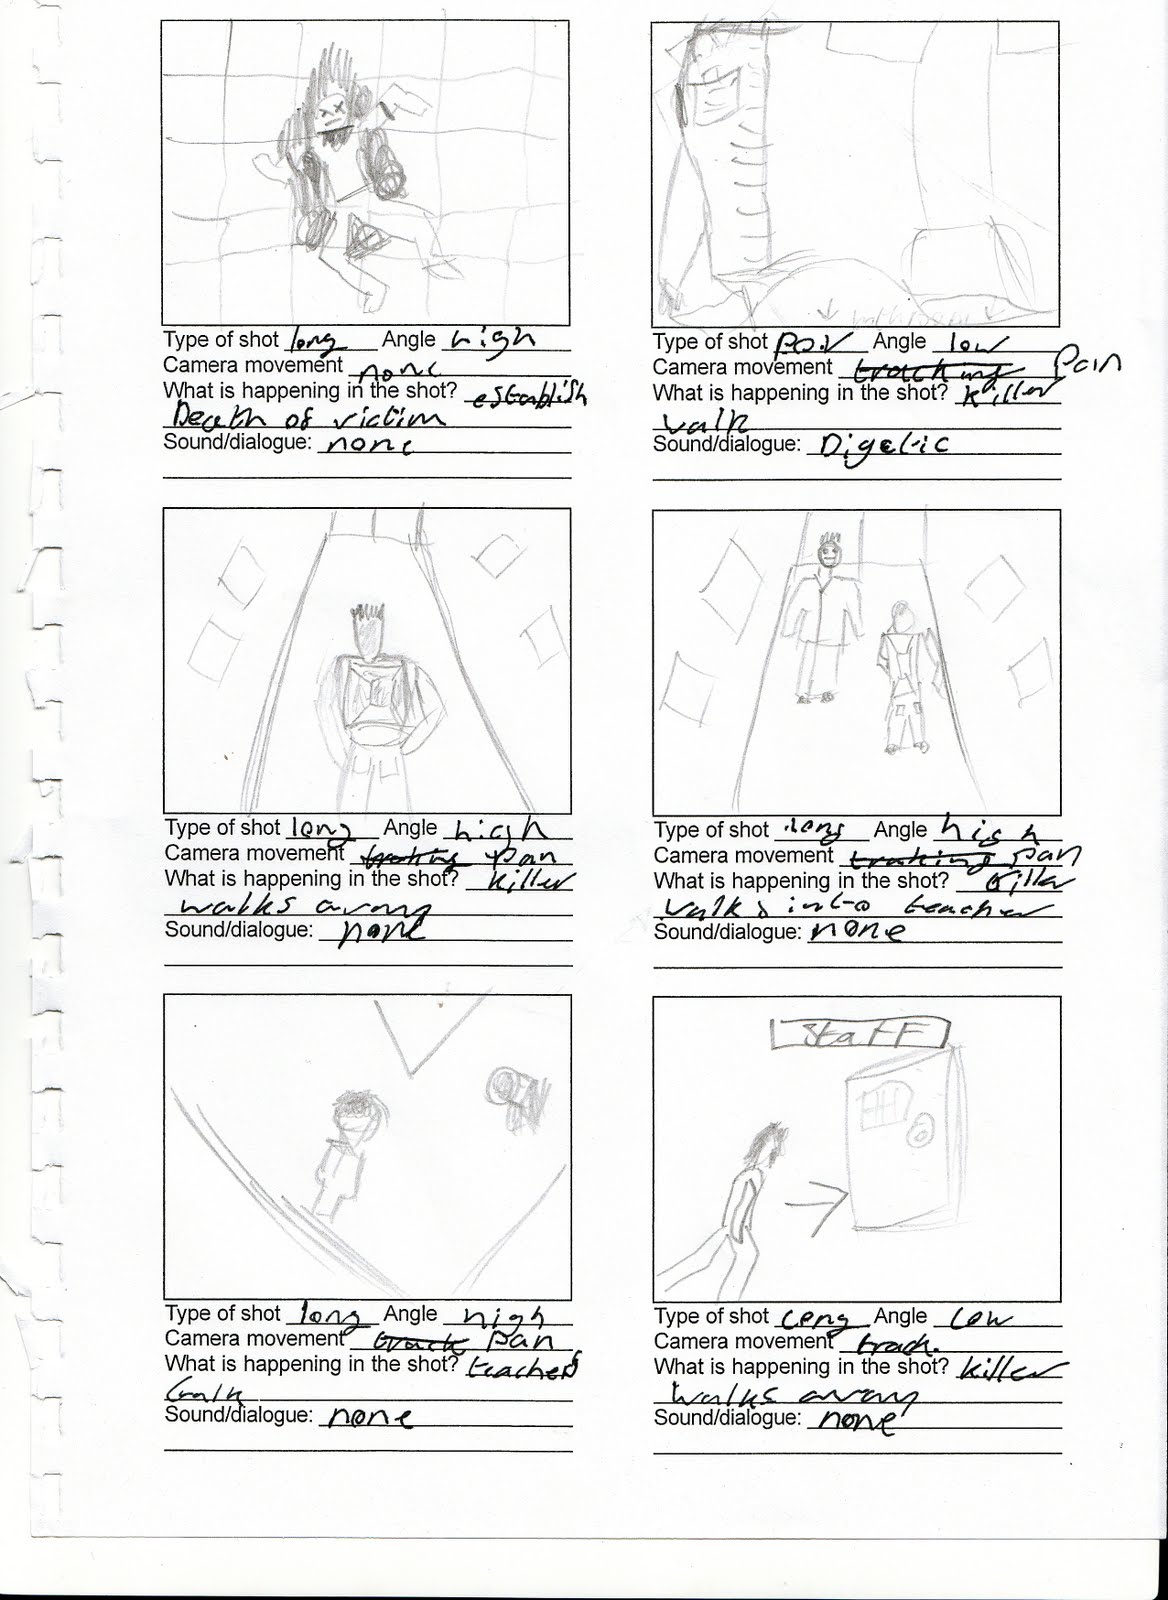 Type of shot long Angle high
Camera movement none
What is happening in the shot? establish
Death of victim
Sound/dialogue: none
Type of shot P.O.V Angle low
Camera movement tracking Pan
What is happening in the shot? Killer
walk
Sound/dialogue: Digetic
Type of shot long Angle high
Camera movement traking pan
What is happening in the shot? Killer
walks away
Sound/dialogue: none
Type of shot long Angle high
Camera movement traking pan
What is happening in the shot? Killer
walks into teacher
Sound/dialogue: none
Type of shot long Angle high
Camera movement track pan
What is happening in the shot? teachers
talk
Sound/dialogue: none
Staff
Type of shot long Angle low
Camera movement track.
What is happening in the shot? killer
walks away
Sound/dialogue: none